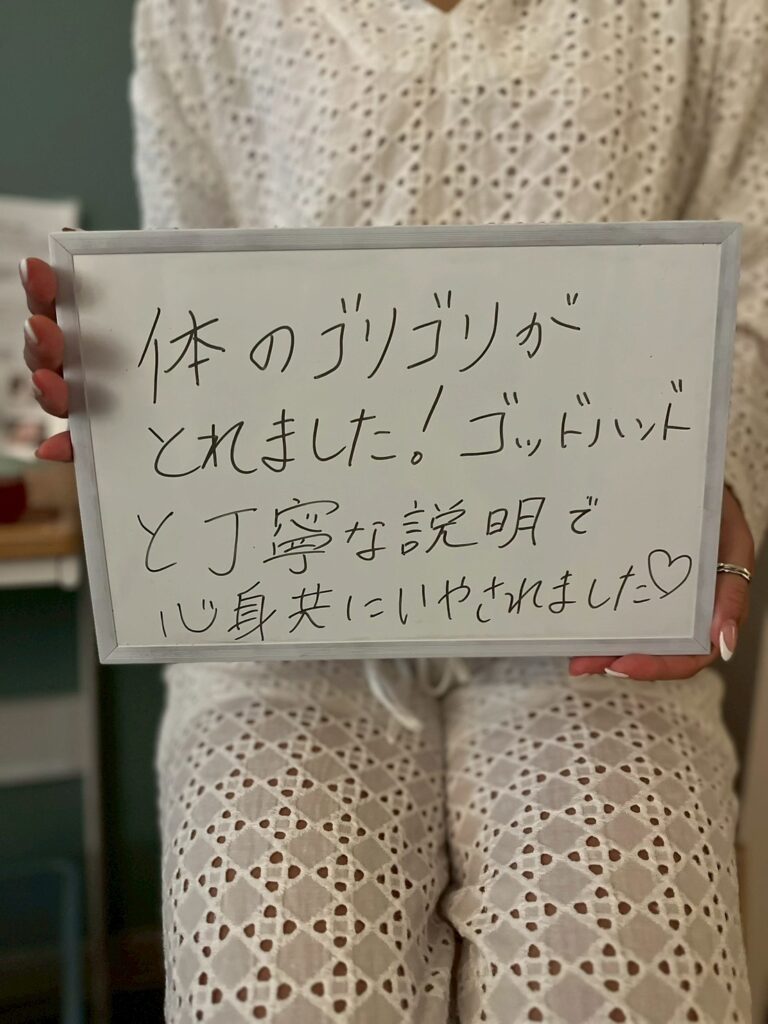 体のゴリゴリが
とれました！ゴッドハンド
と丁寧な説明で
心身共にいやされました♡